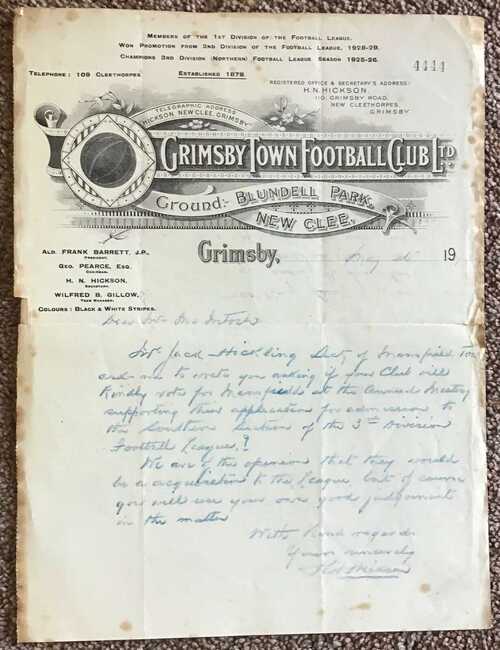 MEMBERS OF THE 1ST DIVISION OF THE FOOTBALL LEAGUE.
WON PROMOTION FROM 2ND DIVISION OF THE FOOTBALL LEAGUE, 1928-29.
CHAMPIONS 3RD DIVISION (NORTHERN) FOOTBALL LEAGUE SEASON 1925-26.
4444
TELEPHONE: 109 CLEETHORPES
ESTABLISHED 1878
REGISTERED OFFICE & SECRETARY'S ADDRESS:
H.N. HICKSON,
GRIMSBY ROAD,
NEW CLEETHORPES,
GRIMSBY
TELEGRAPHIC ADDRESS
HICKSON, NEW CLEE, GRIMSBY
GRIMSBY TOWN FOOTBALL CLUB LTD.
Ground:- BLUNDELL PARK,
NEW CLEE.
ALD. FRANK BARRETT, J.P.,
PRESIDENT.
GEO. PEARCE, ESQ.
CHAIRMAN.
H. N. HICKSON,
SECRETARY.
WILFRED B. GILLOW,
TEAM MANAGER.
COLOURS: BLACK & WHITE STRIPES.
Grimsby, May 19
Dear Mr
Mr Jack Hickling Sect of Mansfield Town
me to write you asking if your Club will
kindly vote for Mansfield at the Annual Meeting
supporting their application for admission to
the Southern Section of the 3rd Division
Football League?
We are of the opinion that they would
be a acquisition to the League but of course
you will use your own good judgement
in the matter
With kind regards
Yours sincerely